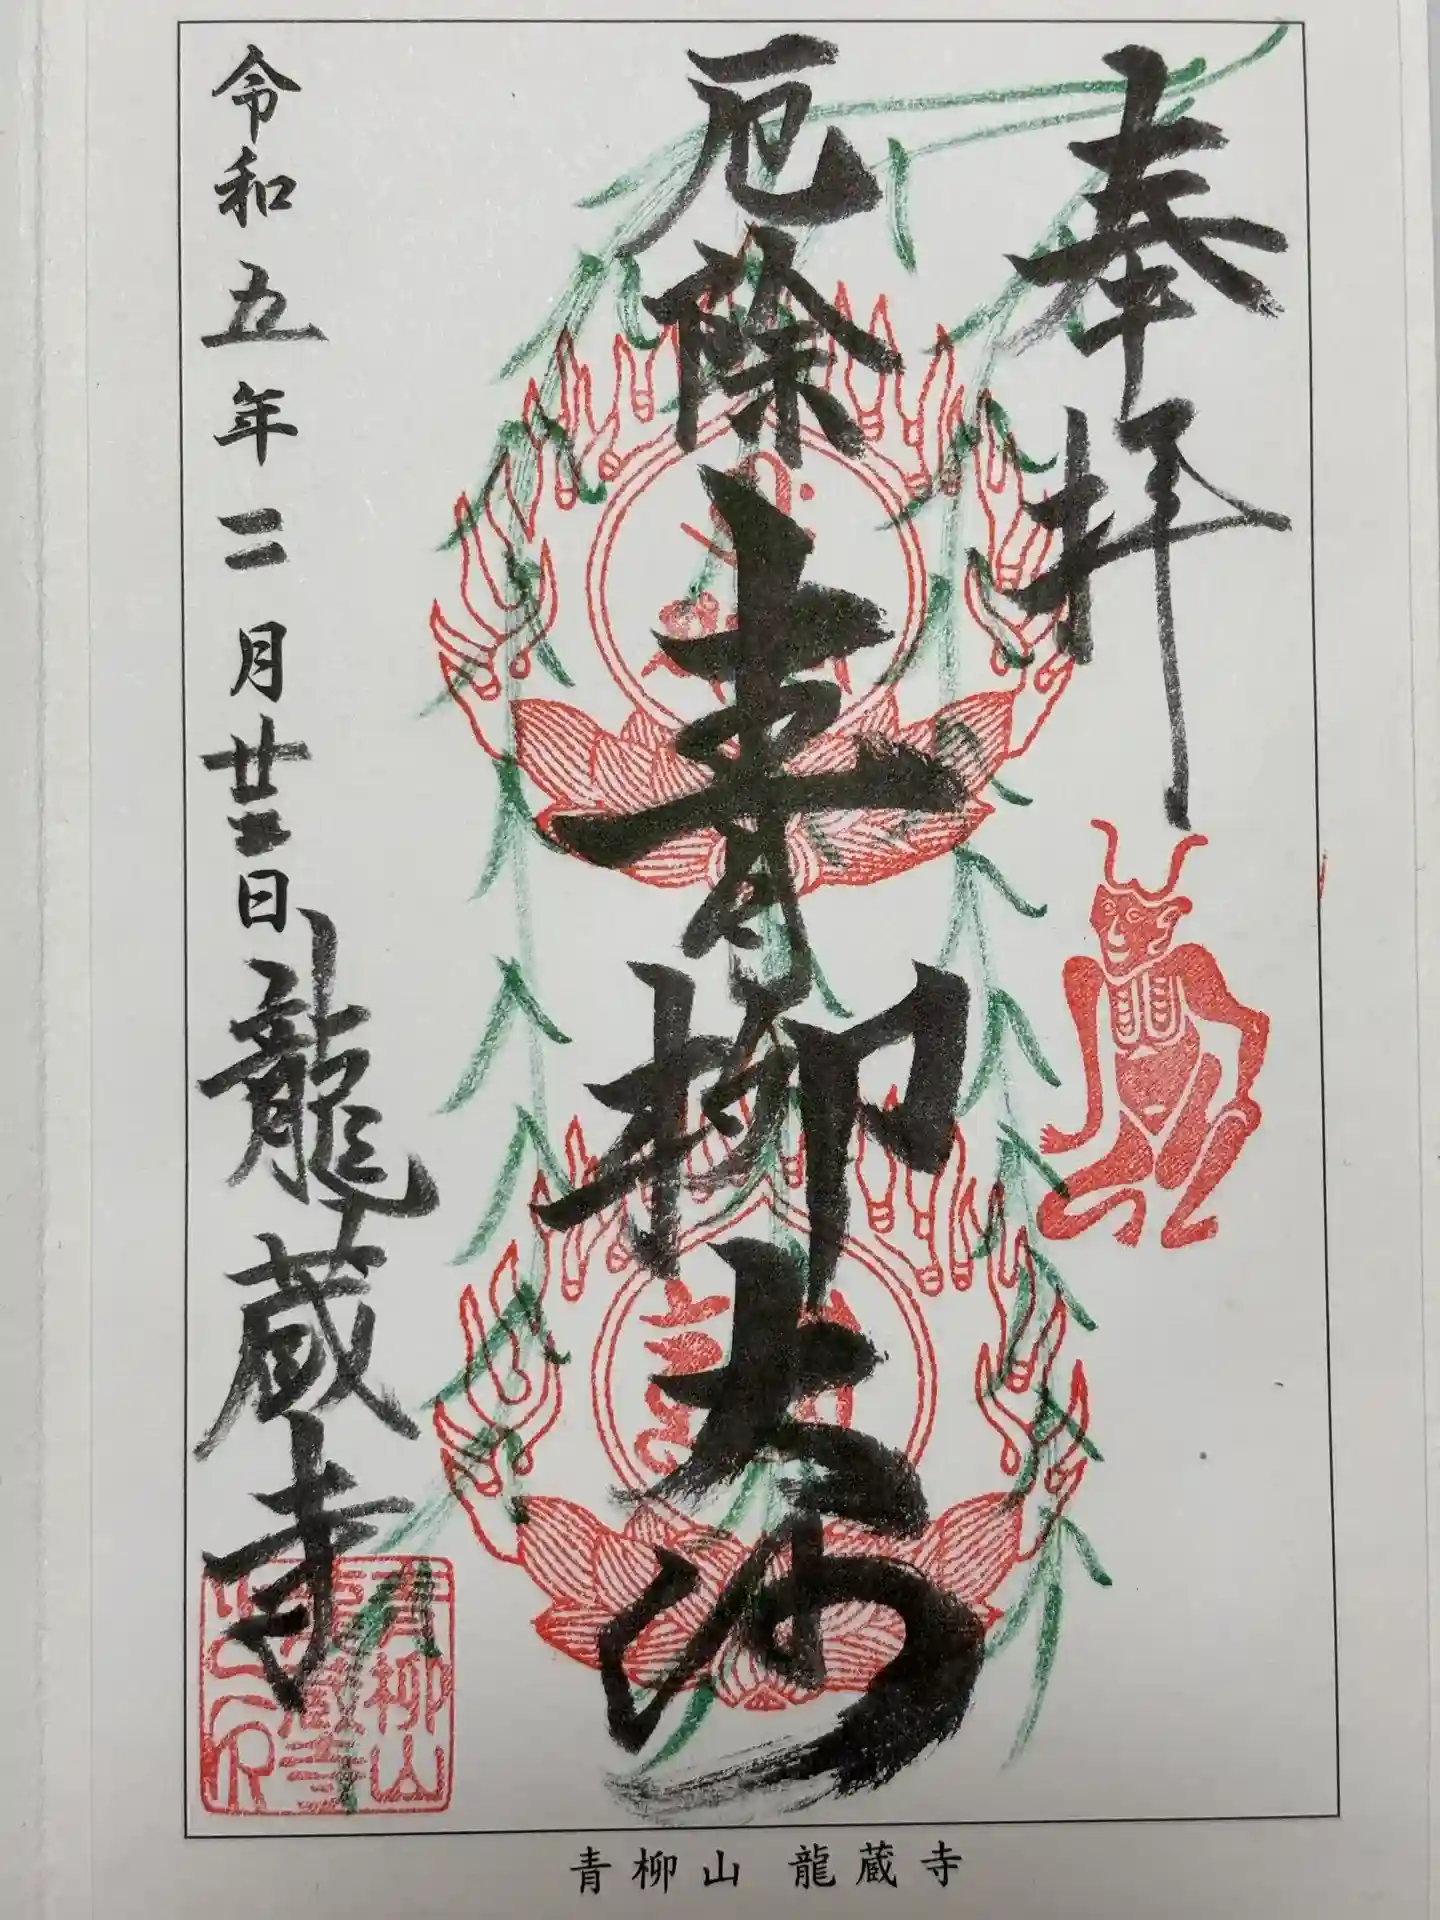 奉拝
厄除
青柳大師
令和五年二月廿二日
龍蔵寺
青柳山
龍蔵寺
之印
青柳山 龍蔵寺